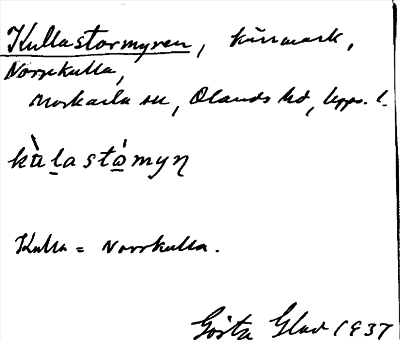 Kullastormyren, kärrmark,
Norrkulla,
Morkarla sn, Olands hd, Upps. l.
kùlastómyn
Kulla = Norrkulla.
Gösta Glad 1937